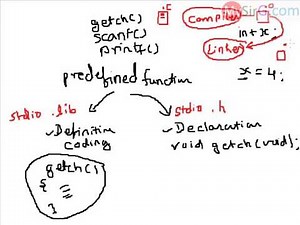 MySirG.com
getch()
scanf()
printf()
.C
Compiler
int x;
Linker
x = 4;
predefined function
stdio.lib
stdio.h
- Definition
coding
- Declaration
void getch(void);
getch()
{
}